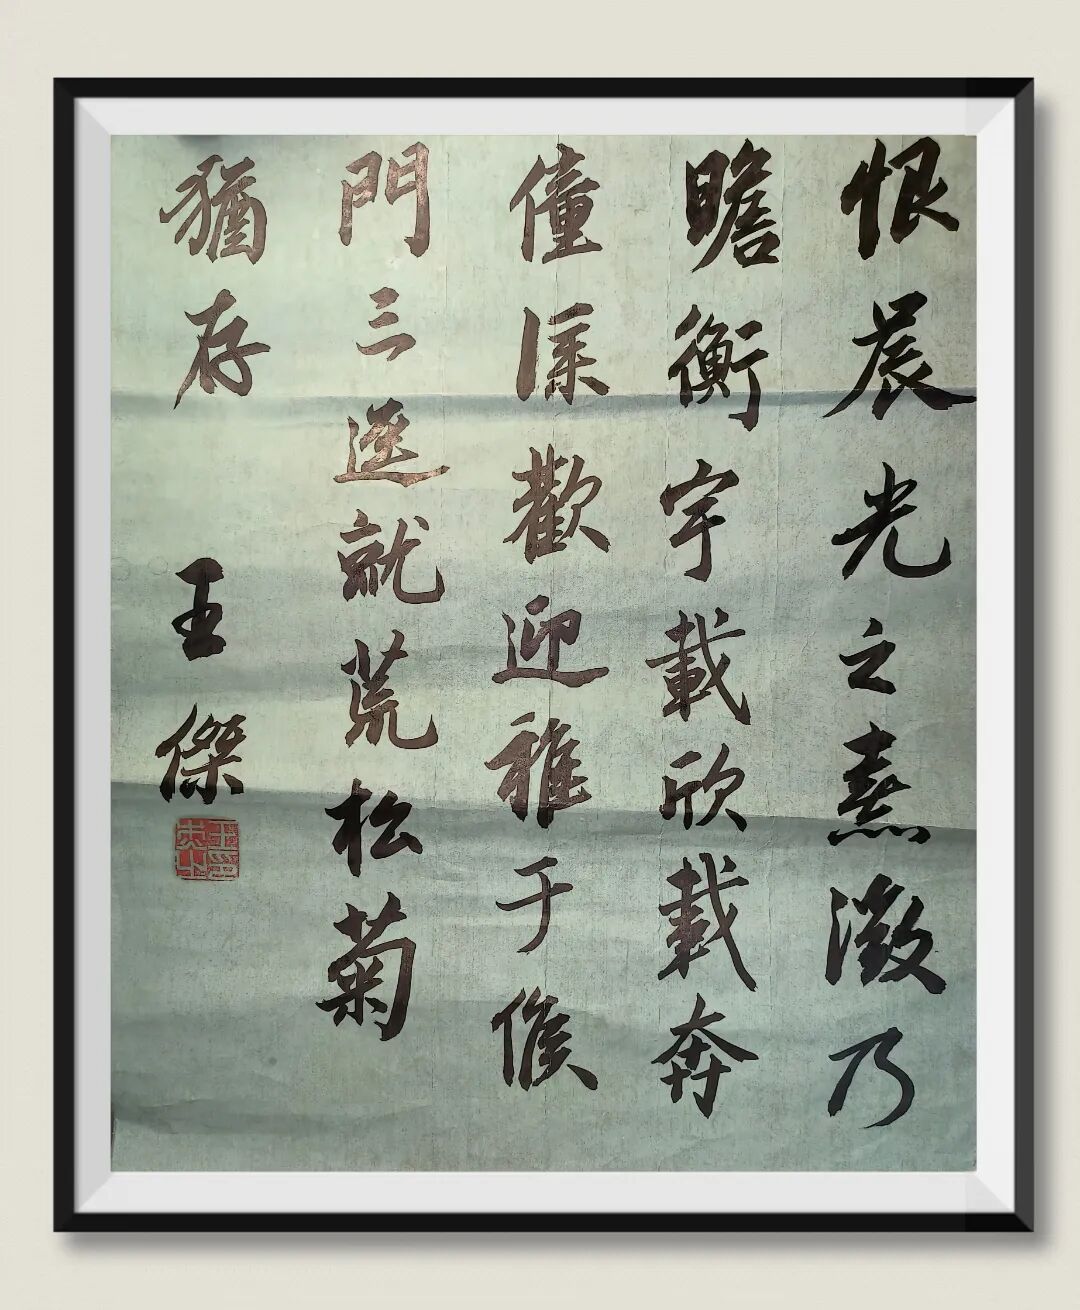 恨晨光之熹微乃
瞻衡宇載欣載奔
僮僕歡迎稚子候
門三逕就荒松菊
猶存 王傑